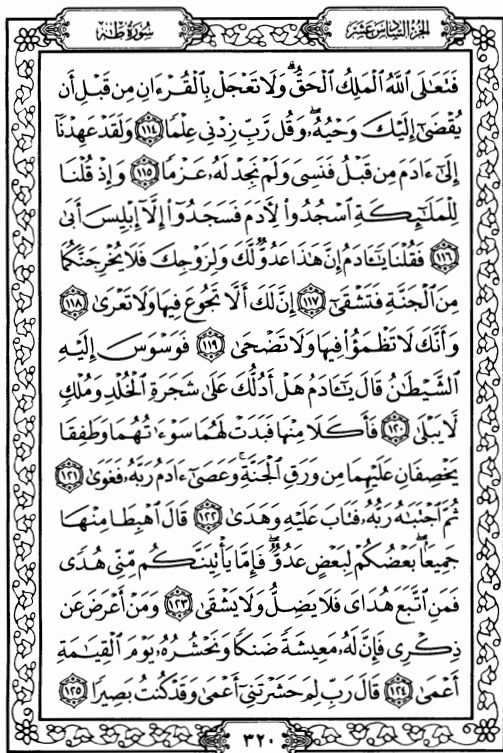 سُورَةُ طه
الجُزءُ السَّادِسَ عَشَرَ
فَتَعَٰلَى ٱللَّهُ ٱلْمَلِكُ ٱلْحَقُّ ۗ وَلَا تَعْجَلْ بِٱلْقُرْءَانِ مِن قَبْلِ أَن
يُقْضَىٰٓ إِلَيْكَ وَحْيُهُۥ ۖ وَقُل رَّبِّ زِدْنِى عِلْمًا ﴿١١٤﴾ وَلَقَدْ عَهِدْنَآ
إِلَىٰٓ ءَادَمَ مِن قَبْلُ فَنَسِىَ وَلَمْ نَجِدْ لَهُۥ عَزْمًا ﴿١١٥﴾ وَإِذْ قُلْنَا
لِلْمَلَٰٓئِكَةِ ٱسْجُدُوا۟ لِءَادَمَ فَسَجَدُوٓا۟ إِلَّآ إِبْلِيسَ أَبَىٰ
﴿١١٦﴾ فَقُلْنَا يَٰٓـَٔادَمُ إِنَّ هَٰذَا عَدُوٌّ لَّكَ وَلِزَوْجِكَ فَلَا يُخْرِجَنَّكُمَا
مِنَ ٱلْجَنَّةِ فَتَشْقَىٰٓ ﴿١١٧﴾ إِنَّ لَكَ أَلَّا تَجُوعَ فِيهَا وَلَا تَعْرَىٰ ﴿١١٨﴾
وَأَنَّكَ لَا تَظْمَؤُا۟ فِيهَا وَلَا تَضْحَىٰ ﴿١١٩﴾ فَوَسْوَسَ إِلَيْهِ
ٱلشَّيْطَٰنُ قَالَ يَٰٓـَٔادَمُ هَلْ أَدُلُّكَ عَلَىٰ شَجَرَةِ ٱلْخُلْدِ وَمُلْكٍ
لَّا يَبْلَىٰ ﴿١٢٠﴾ فَأَكَلَا مِنْهَا فَبَدَتْ لَهُمَا سَوْءَٰتُهُمَا وَطَفِقَا
يَخْصِفَانِ عَلَيْهِمَا مِن وَرَقِ ٱلْجَنَّةِ ۚ وَعَصَىٰٓ ءَادَمُ رَبَّهُۥ فَغَوَىٰ ﴿١٢١﴾
ثُمَّ ٱجْتَبَٰهُ رَبُّهُۥ فَتَابَ عَلَيْهِ وَهَدَىٰ ﴿١٢٢﴾ قَالَ ٱهْبِطَا مِنْهَا
جَمِيعًۢا ۖ بَعْضُكُمْ لِبَعْضٍ عَدُوٌّ ۖ فَإِمَّا يَأْتِيَنَّكُم مِّنِّى هُدًى
فَمَنِ ٱتَّبَعَ هُدَاىَ فَلَا يَضِلُّ وَلَا يَشْقَىٰ ﴿١٢٣﴾ وَمَنْ أَعْرَضَ عَن
ذِكْرِى فَإِنَّ لَهُۥ مَعِيشَةً ضَنكًا وَنَحْشُرُهُۥ يَوْمَ ٱلْقِيَٰمَةِ
أَعْمَىٰ ﴿١٢٤﴾ قَالَ رَبِّ لِمَ حَشَرْتَنِىٓ أَعْمَىٰ وَقَدْ كُنتُ بَصِيرًا ﴿١٢٥﴾
٣٢٠